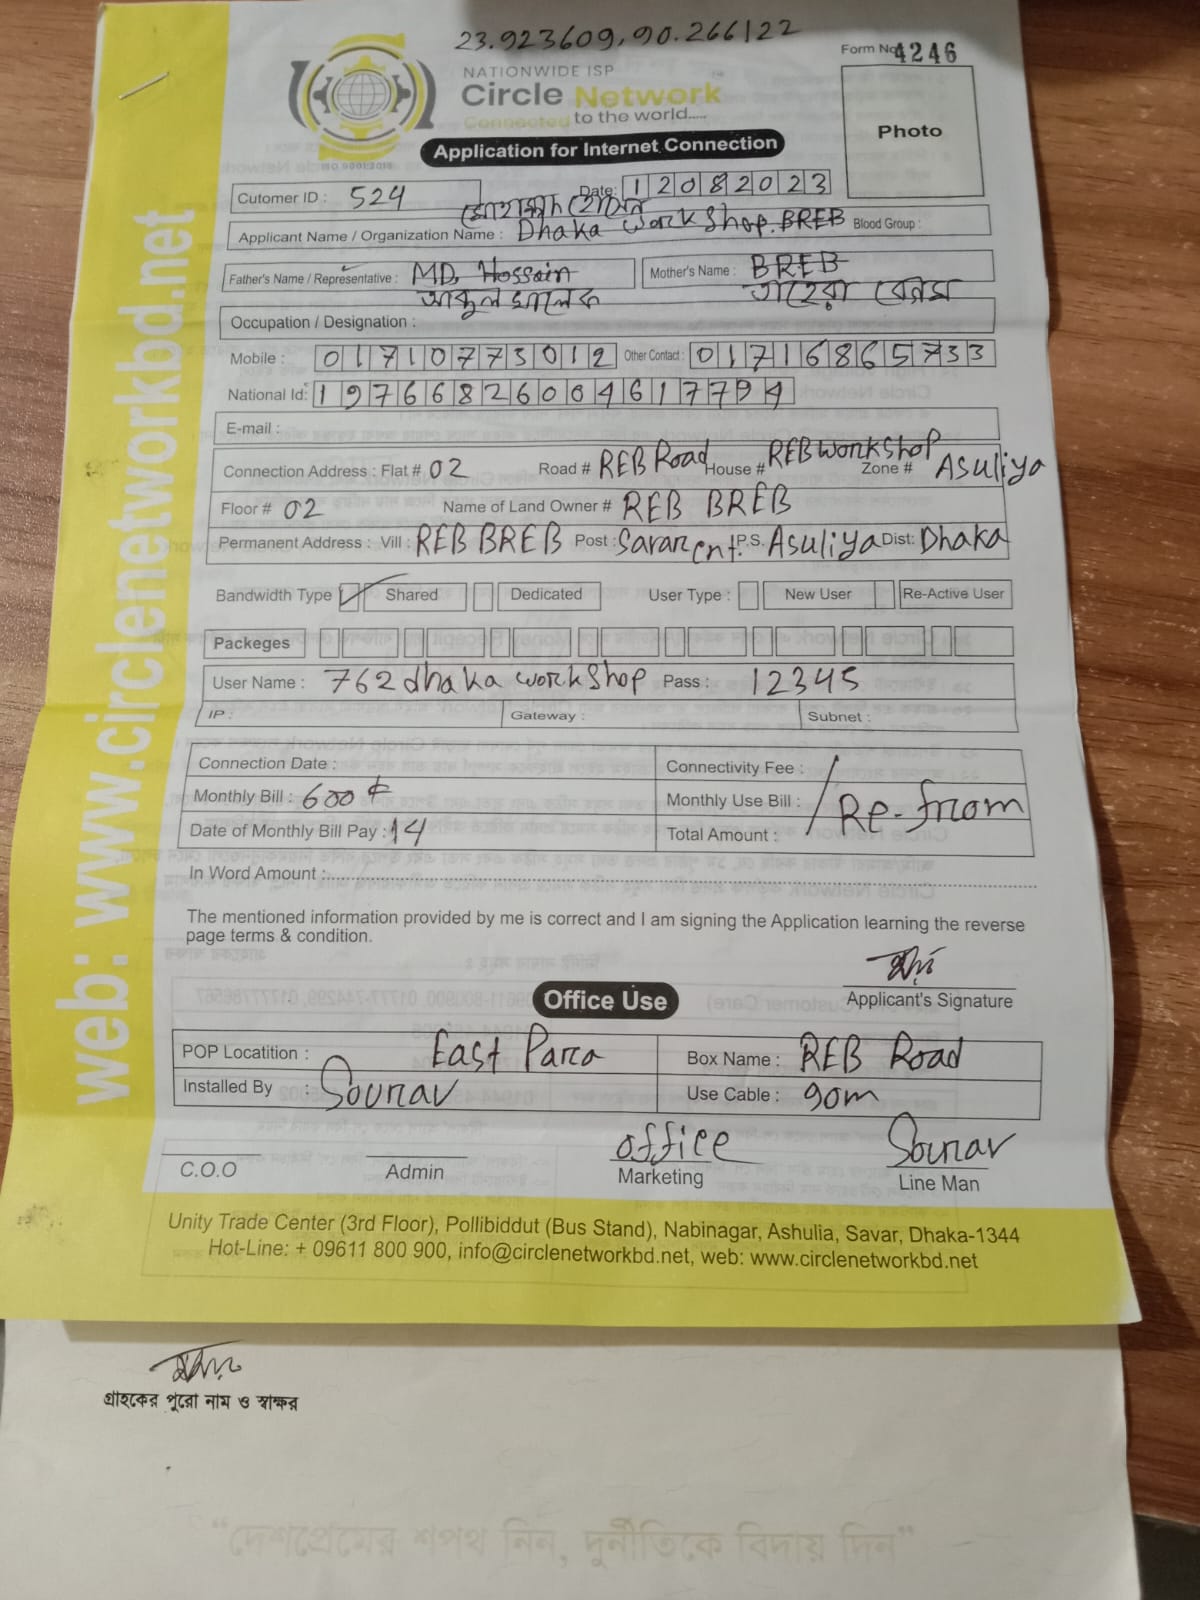 23.923609,90.266122
Form No 4246
NATIONWIDE ISP
Circle Network
Connected to the world.....
ISO 9001:2015
Photo
Application for Internet Connection
Cutomer ID : 524 Date: 12082023
মোহাম্মদ হোসেন
Applicant Name / Organization Name : Dhaka workShop. BREB Blood Group :
Father's Name / Representative : MD. Hossain Mother's Name : BREB
আব্দুল মালেক তাহেরা বেগম
Occupation / Designation :
Mobile : 01710773012 Other Contact : 01716865733
National Id: 19766826004617794
E-mail :
Connection Address : Flat # 02 Road # REB Road House # REB workShop Zone # Asuliya
Floor # 02 Name of Land Owner # REB BREB
Permanent Address : Vill : REB BREB Post : Savar Cnt. P.S. Asuliya Dist: Dhaka
Bandwidth Type Shared Dedicated User Type : New User Re-Active User
Packeges
User Name : 762dhaka workShop Pass : 12345
IP : Gateway : Subnet :
Connection Date : Connectivity Fee :
Monthly Bill : 600 Monthly Use Bill : Re-from
Date of Monthly Bill Pay : 14 Total Amount :
In Word Amount :
The mentioned information provided by me is correct and I am signing the Application learning the reverse
page terms & condition.
Applicant's Signature
Office Use
POP Locatition : East Para Box Name : REB Road
Installed By : Sourav Use Cable : 90m
office Sourav
C.O.O Admin Marketing Line Man
Unity Trade Center (3rd Floor), Pollibiddut (Bus Stand), Nabinagar, Ashulia, Savar, Dhaka-1344
Hot-Line: + 09611 800 900, info@circlenetworkbd.net, web: www.circlenetworkbd.net
web: www.circlenetworkbd.net
গ্রাহকের পুরো নাম ও স্বাক্ষর
“দেশপ্রেমের শপথ নিন, দুর্নীতিকে বিদায় দিন”